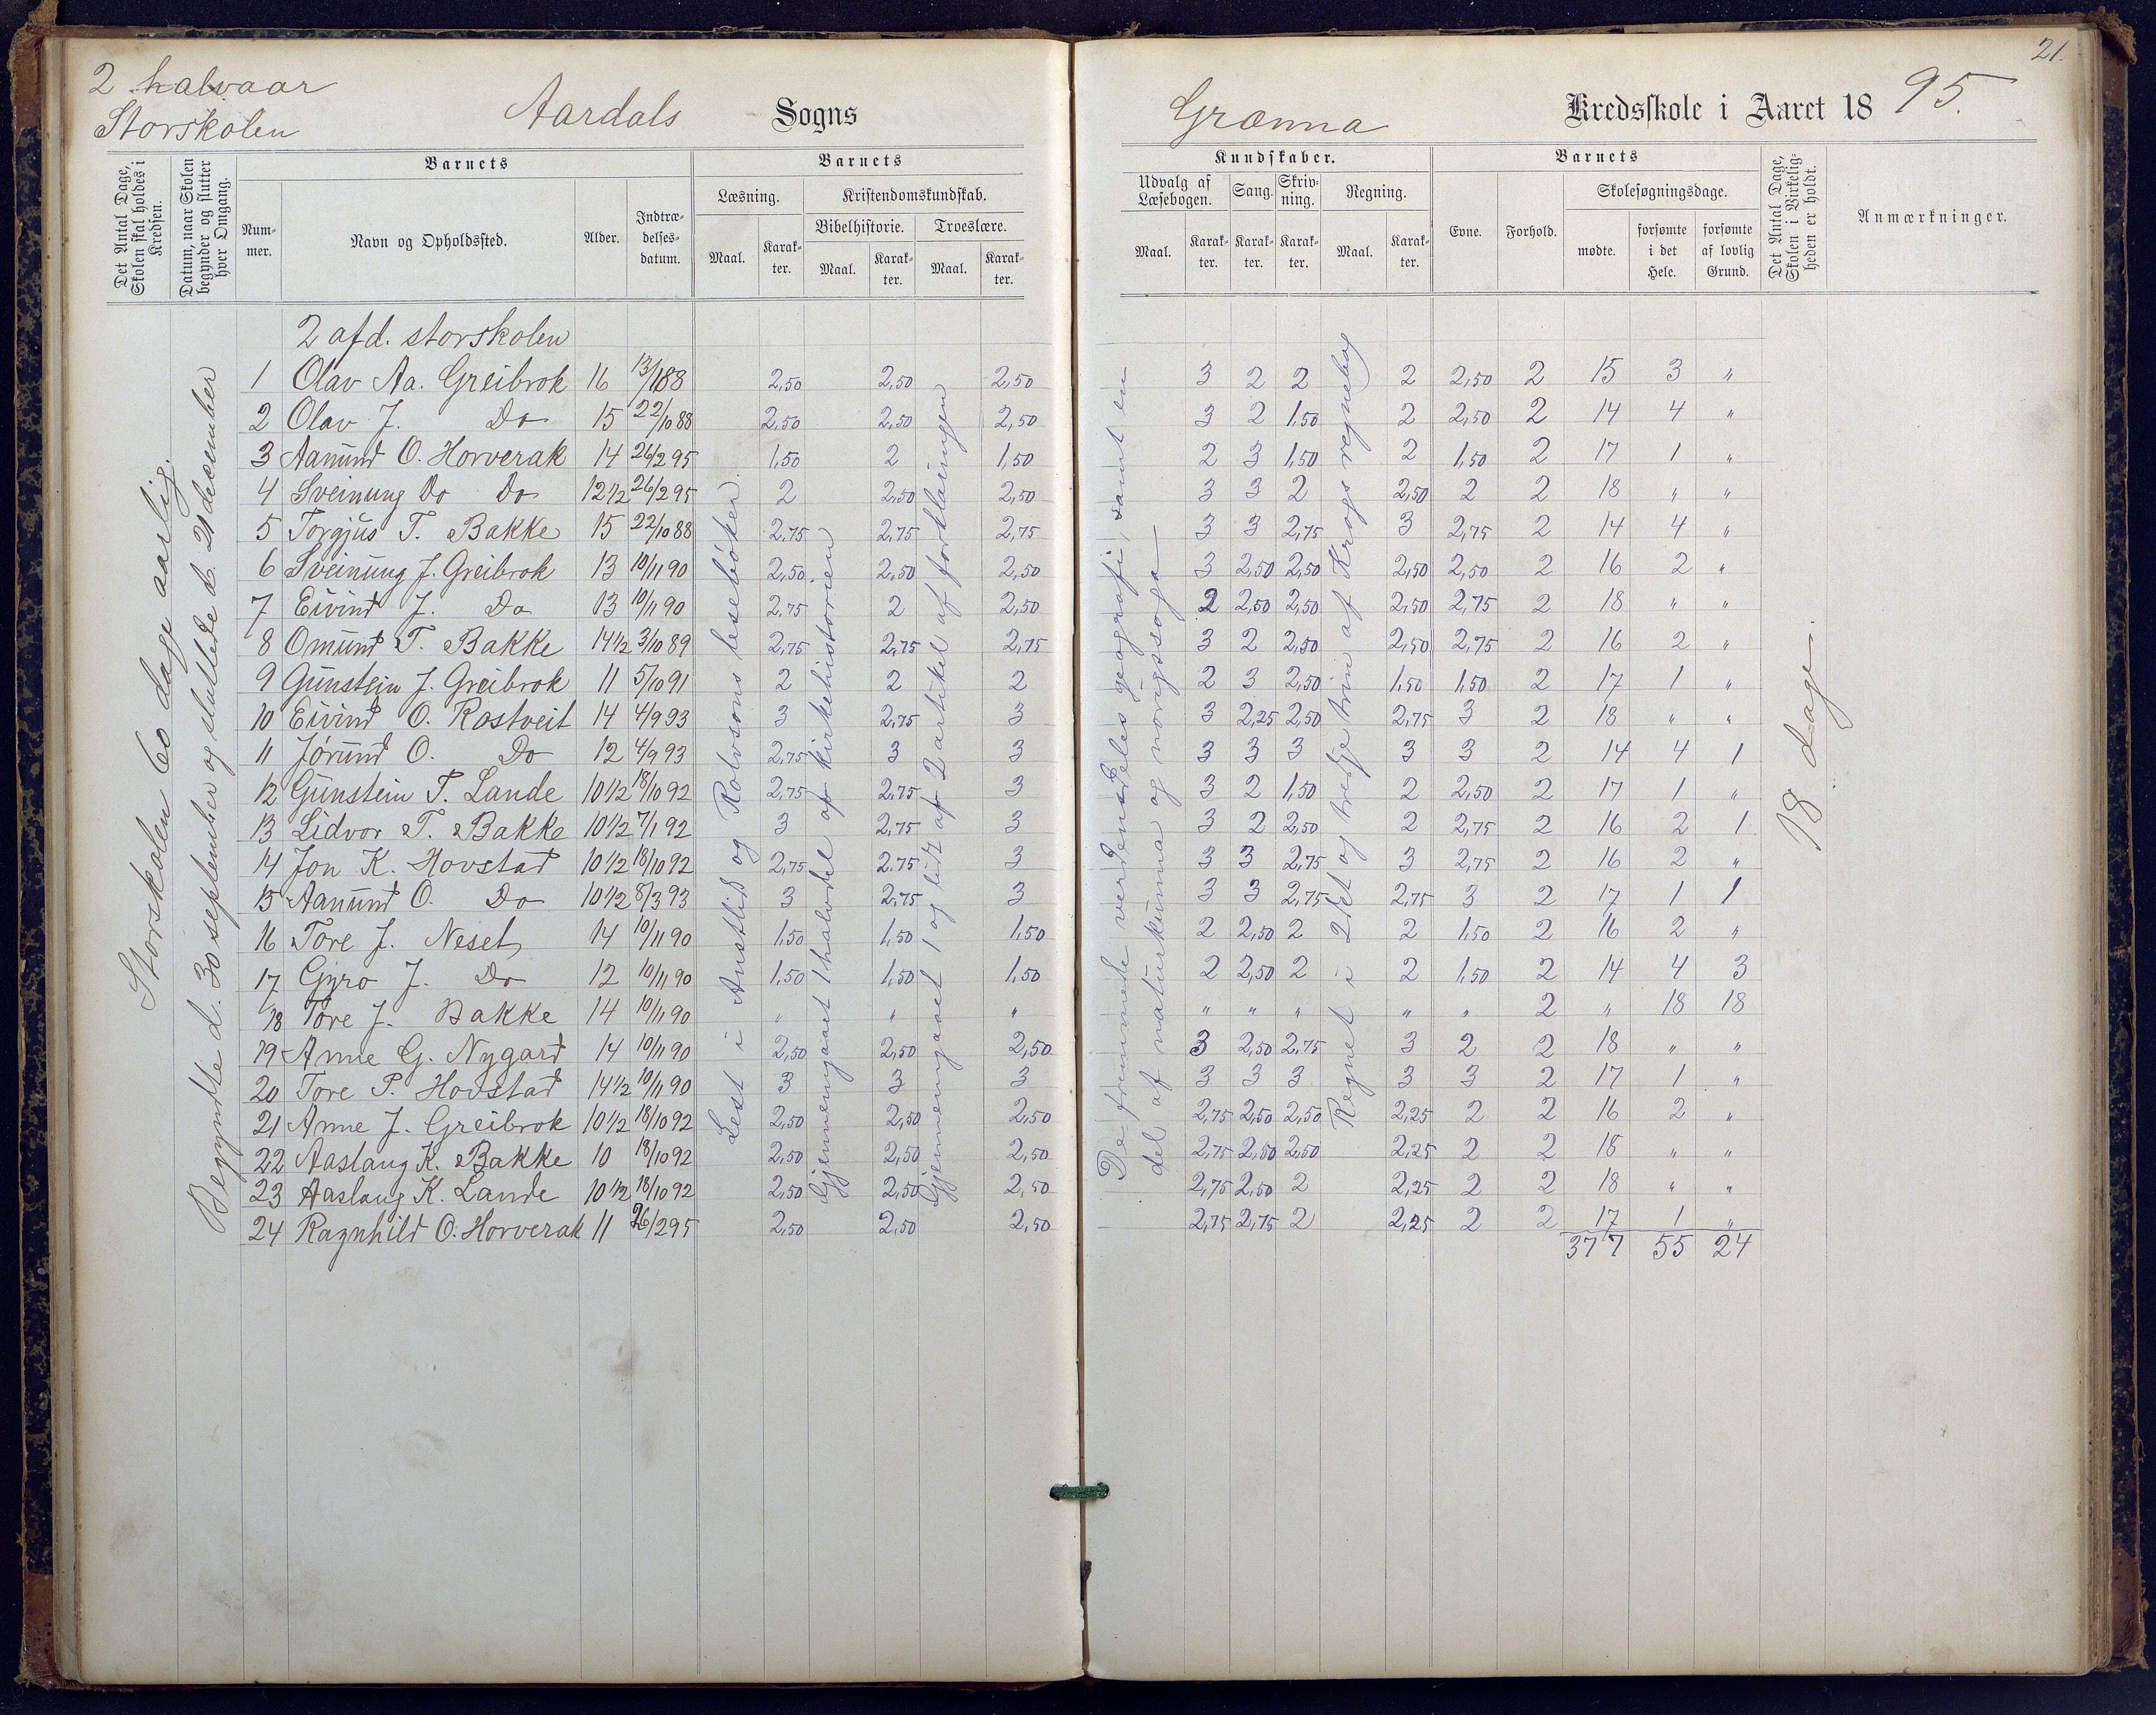 21.
2 halvaar
Storskolen
Aardals Sogns
Grænna Kredsskole i Aaret 1895.
Det Antal Dage, Skolen skal holdes i Kredsen.
Datum, naar Skolen begynder og slutter hver Omgang.
Barnets
Nummer.
Navn og Opholdssted.
Alder.
Indtrædelsesdatum.
Barnets
Læsning.
Maal.
Karakter.
Kristendomskundskab.
Bibelhistorie.
Maal.
Karakter.
Troeslære.
Maal.
Karakter.
Kundskaber.
Udvalg af Læsebogen.
Maal.
Karakter.
Sang.
Karakter.
Skrivning.
Karakter.
Regning.
Maal.
Karakter.
Barnets
Evne.
Forhold.
Skolesøgningsdage.
mødte.
forsømte i det Hele.
forsømte af lovlig Grund.
Det Antal Dage, Skolen i Virkeligheden er holdt.
Anmærkninger.
Storskolen 60 dage aarlig.
Begyndte d. 30 september og sluttede d. 21 december
2 afd. storskolen
1 Olav Aa. Greibrok 16 13/1 88 2,50 2,50 2,50 3 2 2 2 2,50 2 15 3 "
2 Olav J. Do 15 22/10 88 2,50 2,50 2,50 3 2 1,50 2 2,50 2 14 4 "
3 Aanund O. Horverak 14 26/2 95 1,50 2 1,50 2 3 1,50 2 1,50 2 17 1 "
4 Sveinung Do Do 12 1/2 26/2 95 2 2,50 2,50 3 3 2 2,50 2 2 18 " "
5 Torgjus T. Bakke 15 22/10 88 2,75 2,75 2,75 3 3 2,75 3 2,75 2 14 4 "
6 Sveinung J. Greibrok 13 10/11 90 2,50 2,50 2,50 3 2,50 2,50 2,50 2,50 2 16 2 "
7 Eivind J. Do 13 10/11 90 2,75 2 2,50 2 2,50 2,50 2,50 2,75 2 18 " "
8 Omund T. Bakke 14 1/2 3/10 89 2,75 2,75 2,75 3 2 2,50 2,50 2,75 2 16 2 "
9 Gunstein J. Greibrok 11 5/10 91 2 2 2 2 3 2,50 1,50 1,50 2 17 1 "
10 Eivind O. Rostveit 14 4/9 93 3 2,75 3 3 2,25 2,50 2,75 3 2 18 " "
11 Jørund O. Do 12 4/9 93 2,75 3 3 3 3 3 3 3 2 14 4 1
12 Gunstein T. Lande 10 1/2 18/10 92 2,75 2,75 3 3 2 1,50 2 2,50 2 17 1 "
13 Lidvor T. Bakke 10 1/2 7/1 92 3 2,75 3 3 2 2,50 2 2,75 2 16 2 1
14 Jon K. Hovstad 10 1/2 18/10 92 2,75 2.75 3 3 3 2,75 3 2,75 2 16 2 "
15 Aanund O. Do 10 1/2 8/3 93 3 2,75 3 3 3 2,75 2,75 3 2 17 1 1
16 Tore J. Neset 14 10/11 90 1,50 1,50 1,50 2 2,50 2 2 1,50 2 16 2 "
17 Gyro J. Do 12 10/11 90 1,50 1,50 1,50 2 2,50 2 2 1,50 2 14 4 3
18 Tore J. Bakke 14 10/11 90 " " " " " " " " 2 " 18 18
19 Anne G. Nygard 14 10/11 90 2,50 2,50 2,50 3 2,50 2,75 3 2 2 18 " "
20 Tore P. Hovstad 14 1/2 10/11 90 3 3 3 3 3 3 3 3 2 17 1 "
21 Anne J. Greibrok 10 1/2 18/10 92 2,50 2,50 2,50 2,75 2,50 2,50 2,25 2 2 16 2 "
22 Aaslaug K. Bakke 10 18/10 92 2,50 2,50 2,50 2,75 2,50 2,50 2,25 2 2 18 " "
23 Aaslaug K. Lande 10 1/2 18/10 92 2,50 2,50 2,50 2,75 2,50 2 2,25 2 2 18 " "
24 Ragnhild O. Horverak 11 26/2 95 2,50 2,50 2,50 2,75 2,75 2 2,25 2 2 17 1 "
377 55 24
Lest i Austlid og Rolvsons lesebøker.
Gjennemgaaet 1 halvdel af kirkehistorien
Gjennemgaaet 1 og lidt af 2 artikel af forklaringen
De fremmede verdensdeles geografi, samt en
del af naturkunna og norigssoga
Regnet i 2det og tredje trin af Krogs regnebog
18 dage.